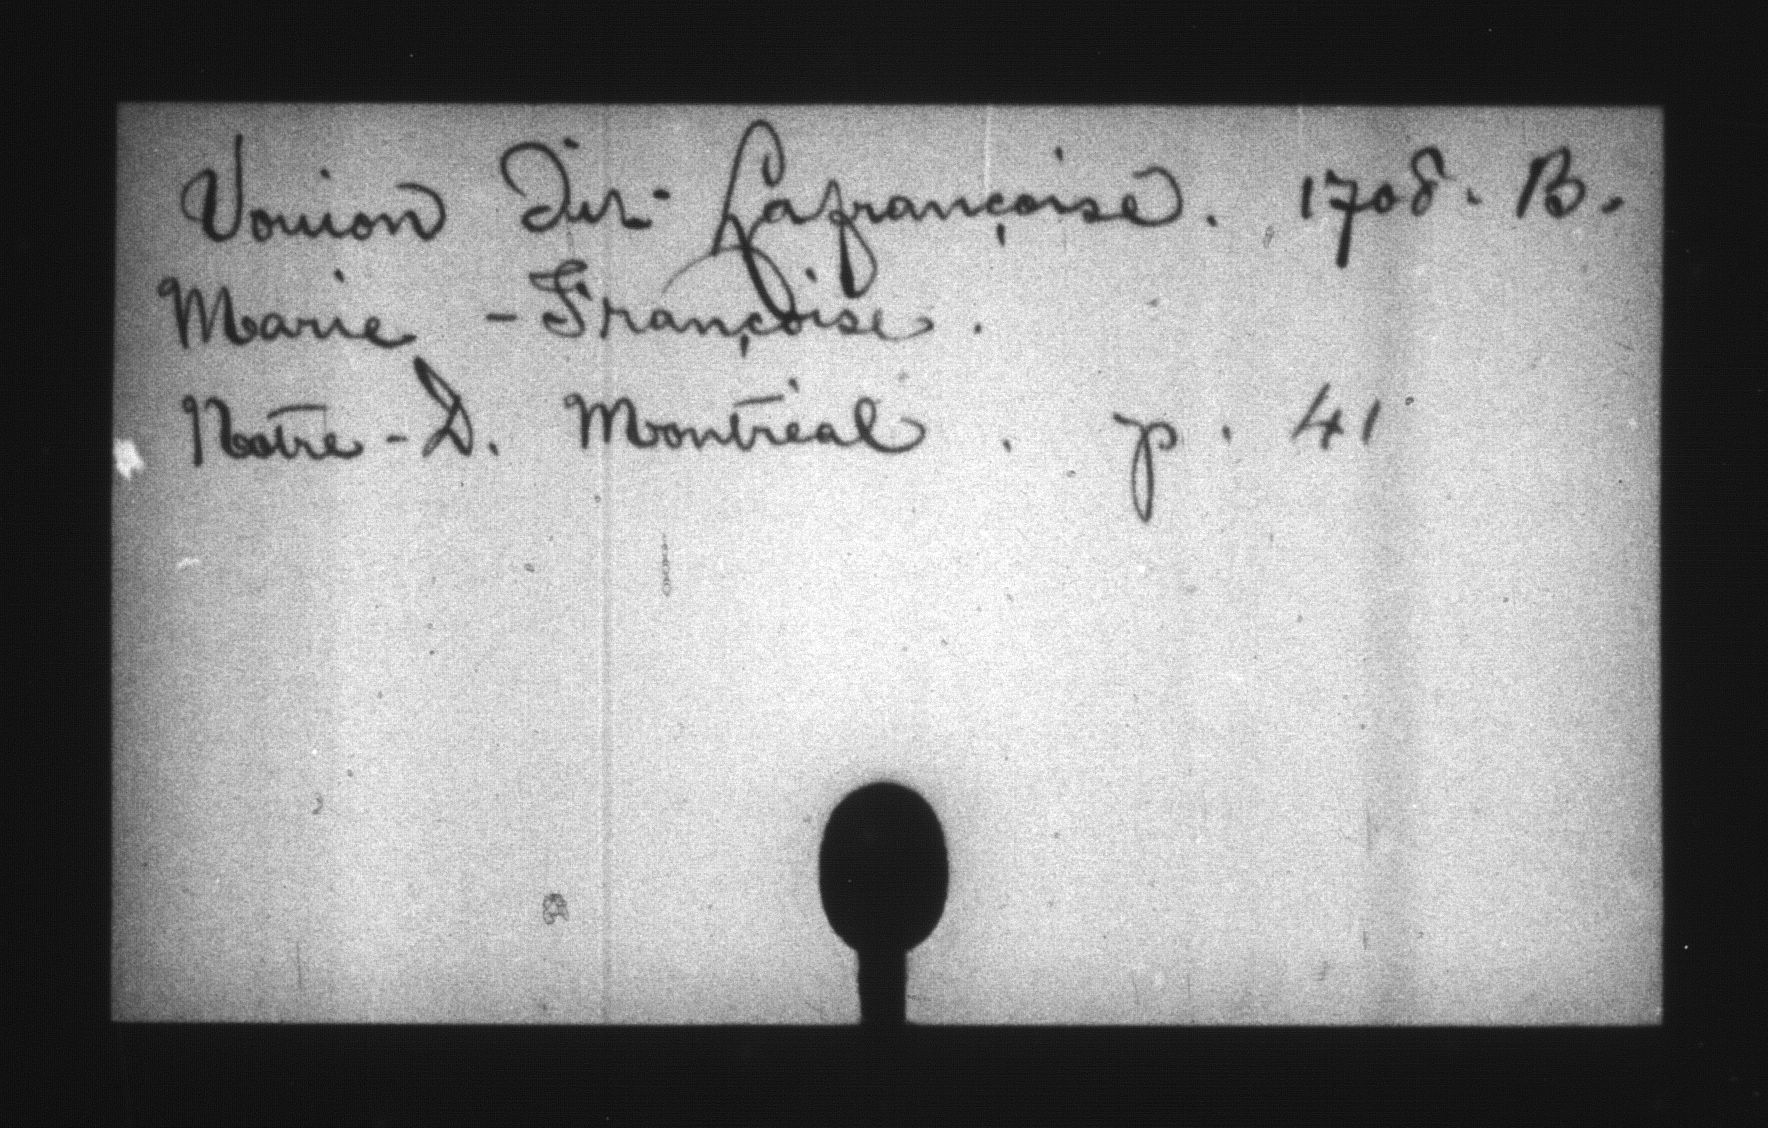 Vouion Dit- Lafrançoise. 1708. B.
Marie - Françoise.
Notre - D. Montréal. p. 41